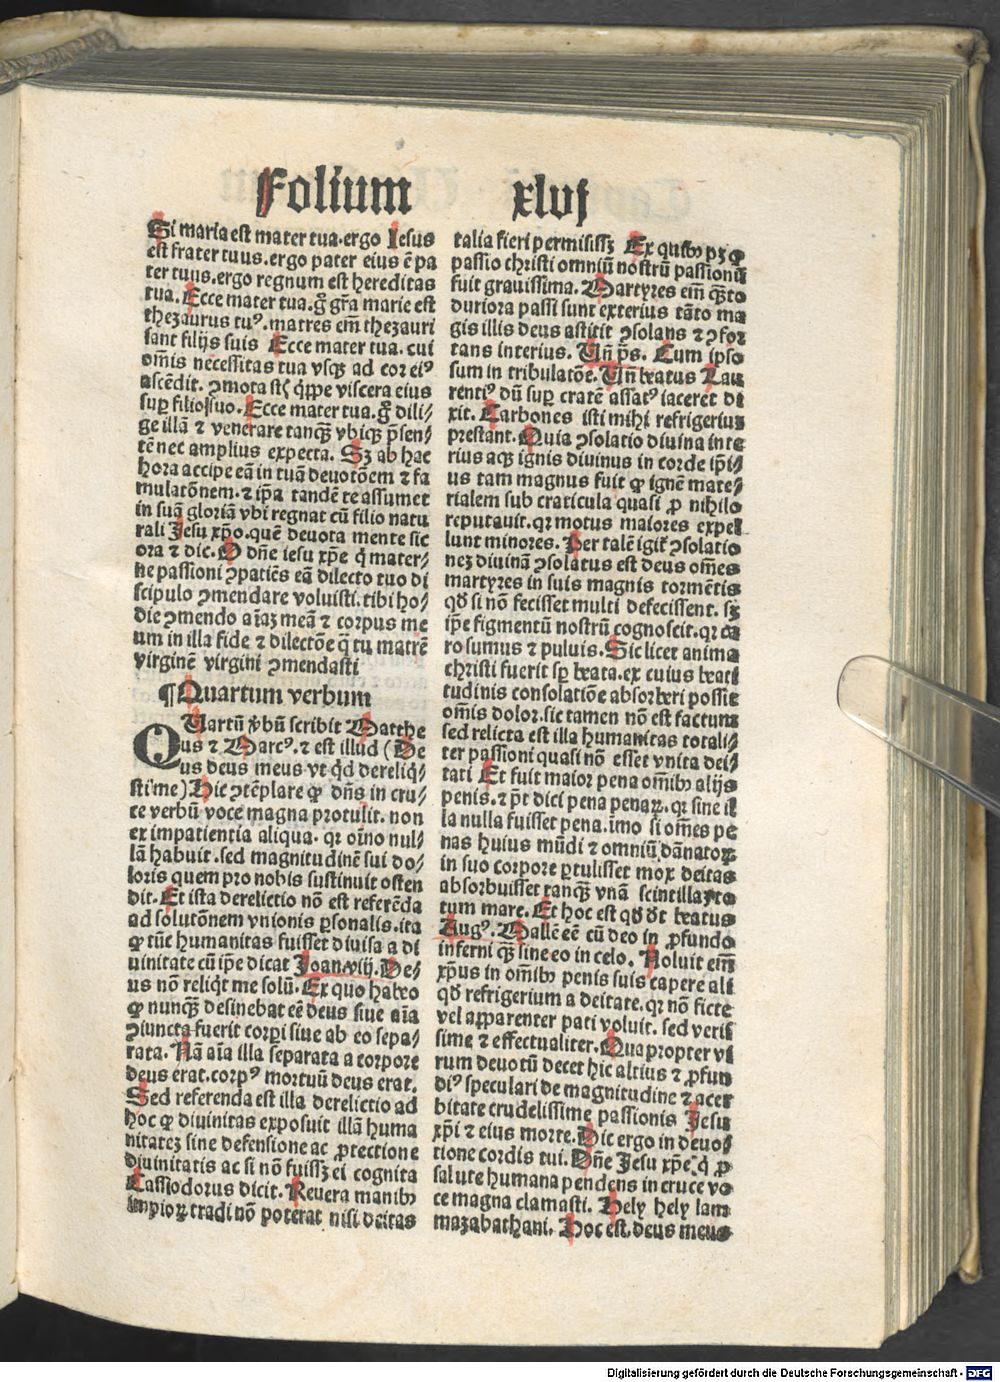 Folium xlvj
Si maria est mater tua. ergo Iesus
est frater tuus. ergo pater eius ē pa
ter tuus. ergo regnum est hereditas
tua. Ecce mater tua. gͦ gr̄a marie est
thezaurus tuꝰ. matres em̄ thezauri
sant filijs suis Ecce mater tua. cui
om̄is necessitas tua vsqꝫ ad cor eiꝰ
ascēdit. ꝯmota st̄ qͥppe viscera eius
suꝑ filio suo. Ecce mater tua. gͦ dili⸗
ge illā ⁊ venerare tanqꝫ̄ vbicqꝫ p̄sen⸗
tē nec amplius expecta. Sꝫ ab hac
hora accipe eā in tuā deuotōem ⁊ fa
mulatōnem. ⁊ ip̄a tandē te assumet
in suā gloriā vbi regnat cū filio natu
rali Jesu xp̄o. quē deuota mente sic
ora ⁊ dic. O dn̄e iesu xp̄e qͥ mater⸗
ne passioni ꝯpatiēs eā dilecto tuo di
scipulo ꝯmendare voluisti. tibi ho⸗
die ꝯmendo aīaꝫ meā ⁊ corpus me
um in illa fide ⁊ dilectōe q̄ tu matrē
virginē virgini ꝯmendasti
¶Quartum verbum
QUartū v̓bū scribit Matthe
us ⁊ Marcꝰ. ⁊ est illud (De
us deus meus vt qͥd dereliq̇⸗
sti me) Hic ꝯtēplare ꝙ dn̄s in cru⸗
ce verbū voce magna protulit. non
ex impatientia aliqua. qꝛ oīno nul⸗
lā habuit. sed magnitudinē sui do⸗
loris quem pro nobis sustinuit osten
dit. Et ista derelictio nō est referēda
ad solutōnem vnionis ꝑsonalis. ita
ꝙ tūc humanitas fuisset diuisa a di
uinitate cū ip̄e dicat Joan. viij. De⸗
us nō reliqͥt me solū. Ex quo habeo
ꝙ nunqꝫ̄ desinebat eē deus siue aīa
ꝯiuncta fuerit corpi siue ab eo sepa⸗
rata. Nā aīa illa separata a corpore
deus erat. corpꝰ mortuū deus erat.
Sed referenda est illa derelictio ad
hoc ꝙ diuinitas exposuit illā huma
nitateꝫ sine defensione ac ꝓtectione
diuinitatis ac si nō fuissꝫ ei cognita
Cassiodorus dicit. Reuera manibꝰ
impioꝝ tradi nō poterat nisi deitas
talia fieri permisissꝫ Ex quibꝰ pꝫ ꝙ
passio christi omniū nostrū passionū
fuit grauissima. Martyres em̄ qꝫ̄to
duriora passi sunt exterius tāto ma
gis illis deus astitit ꝯsolans ⁊ ꝯfor
tans interius. Un̄ ps̄. Cum ipso
sum in tribulatōe. Un̄ beatus Lau
rentiꝰ dū suꝑ cratē assatꝰ iaceret di
xit. Carbones isti mihi refrigeriuꝫ
prestant. Quia ꝯsolatio diuina inte
rius acqꝫ ignis diuinus in corde ip̄i⸗
us tam magnus fuit ꝙ ignē mate⸗
rialem sub craticula quasi ꝓ nihilo
reputauit. qꝛ motus maiores expel
lunt minores. Per talē igiꝉ ꝯsolatio
neꝫ diuinā ꝯsolatus est deus om̄es
martyres in suis magnis tormētis
qd̄ si nō fecisset multi defecissent. sꝫ
ip̄e figmentū nostrū cognoscit. qꝛ ca
ro sumus ⁊ puluis. Sic licet anima
christi fuerit sꝑ beata. ex cuius beati
tudinis consolatiōe absorberi possit
om̄is dolor. sic tamen nō est factum
sed relicta est illa humanitas totali⸗
ter passioni quasi nō esset vnita dei⸗
tati Et fuit maior pena om̄ibꝰ alijs
penis. ⁊ pt̄ dici pena penaꝝ. qꝛ sine il
la nulla fuisset pena. imo si om̄es pe
nas huius mūdi ⁊ omniū dānatoꝝ
in suo corpore ꝑtulisset mox deitas
absorbuisset tanqꝫ̄ vnā scintillā to
tum mare. Et hoc est qd̄ dt̄ beatus
Augꝰ. Mallē eē cū deo in ꝓfundo
inferni qꝫ̄ sine eo in celo. Noluit em̄
xp̄us in om̄ibꝰ penis suis capere ali
qd̄ refrigerium a deitate. qꝛ nō ficte
vel apparenter pati voluit. sed veris
sime ⁊ effectualiter. Quapropter vi
rum deuotū decet hic altius ⁊ ꝓfun
diꝰ speculari de magnitudine ⁊ acer
bitate crudelissime passionis Jesu
xp̄i ⁊ eius morte. Dic ergo in deuo⸗
tione cordis tui. Dn̄e Jesu xp̄e. qͥ ꝓ
salute humana pendens in cruce vo
ce magna clamasti. Hely hely lam
mazabathani. Hoc est. deus meus
Digitalisierung gefördert durch die Deutsche Forschungsgemeinschaft - DFG